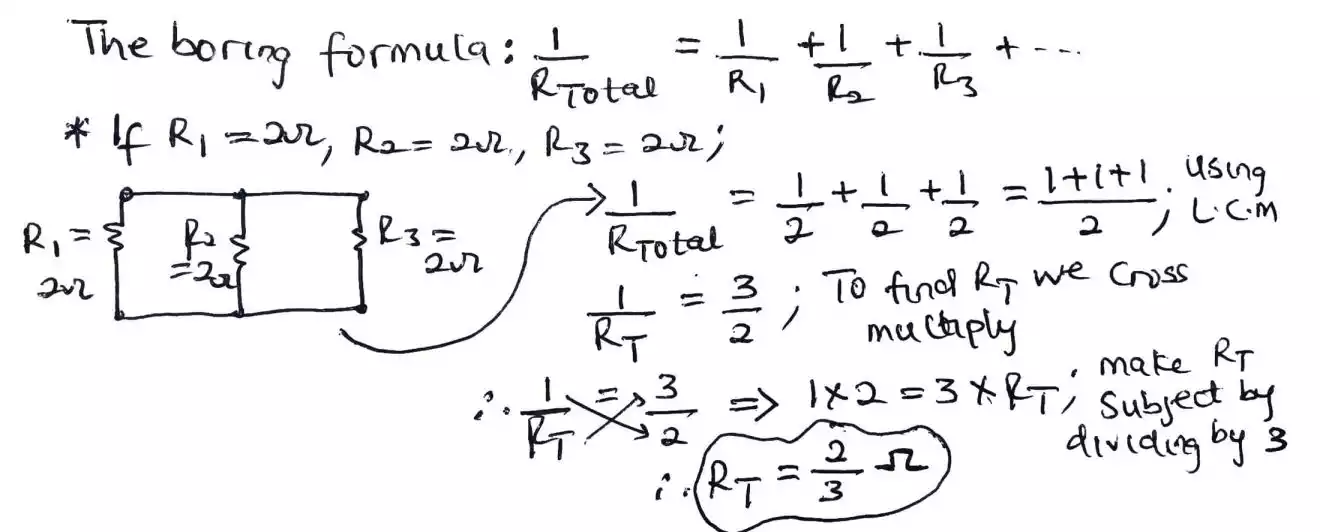 The boring formula: 1/R_Total = 1/R₁ + 1/R₂ + 1/R₃ + ---
* If R₁ = 2Ω, R₂ = 2Ω, R₃ = 2Ω;
R₁ = 2Ω
R₂ = 2Ω
R₃ = 2Ω
1/R_Total = 1/2 + 1/2 + 1/2 = (1+1+1)/2; Using L.C.M
1/R_T = 3/2; To find R_T we cross multiply
∴ 1/R_T = 3/2 => 1×2 = 3×R_T; make R_T subject by dividing by 3
∴ R_T = 2/3 Ω